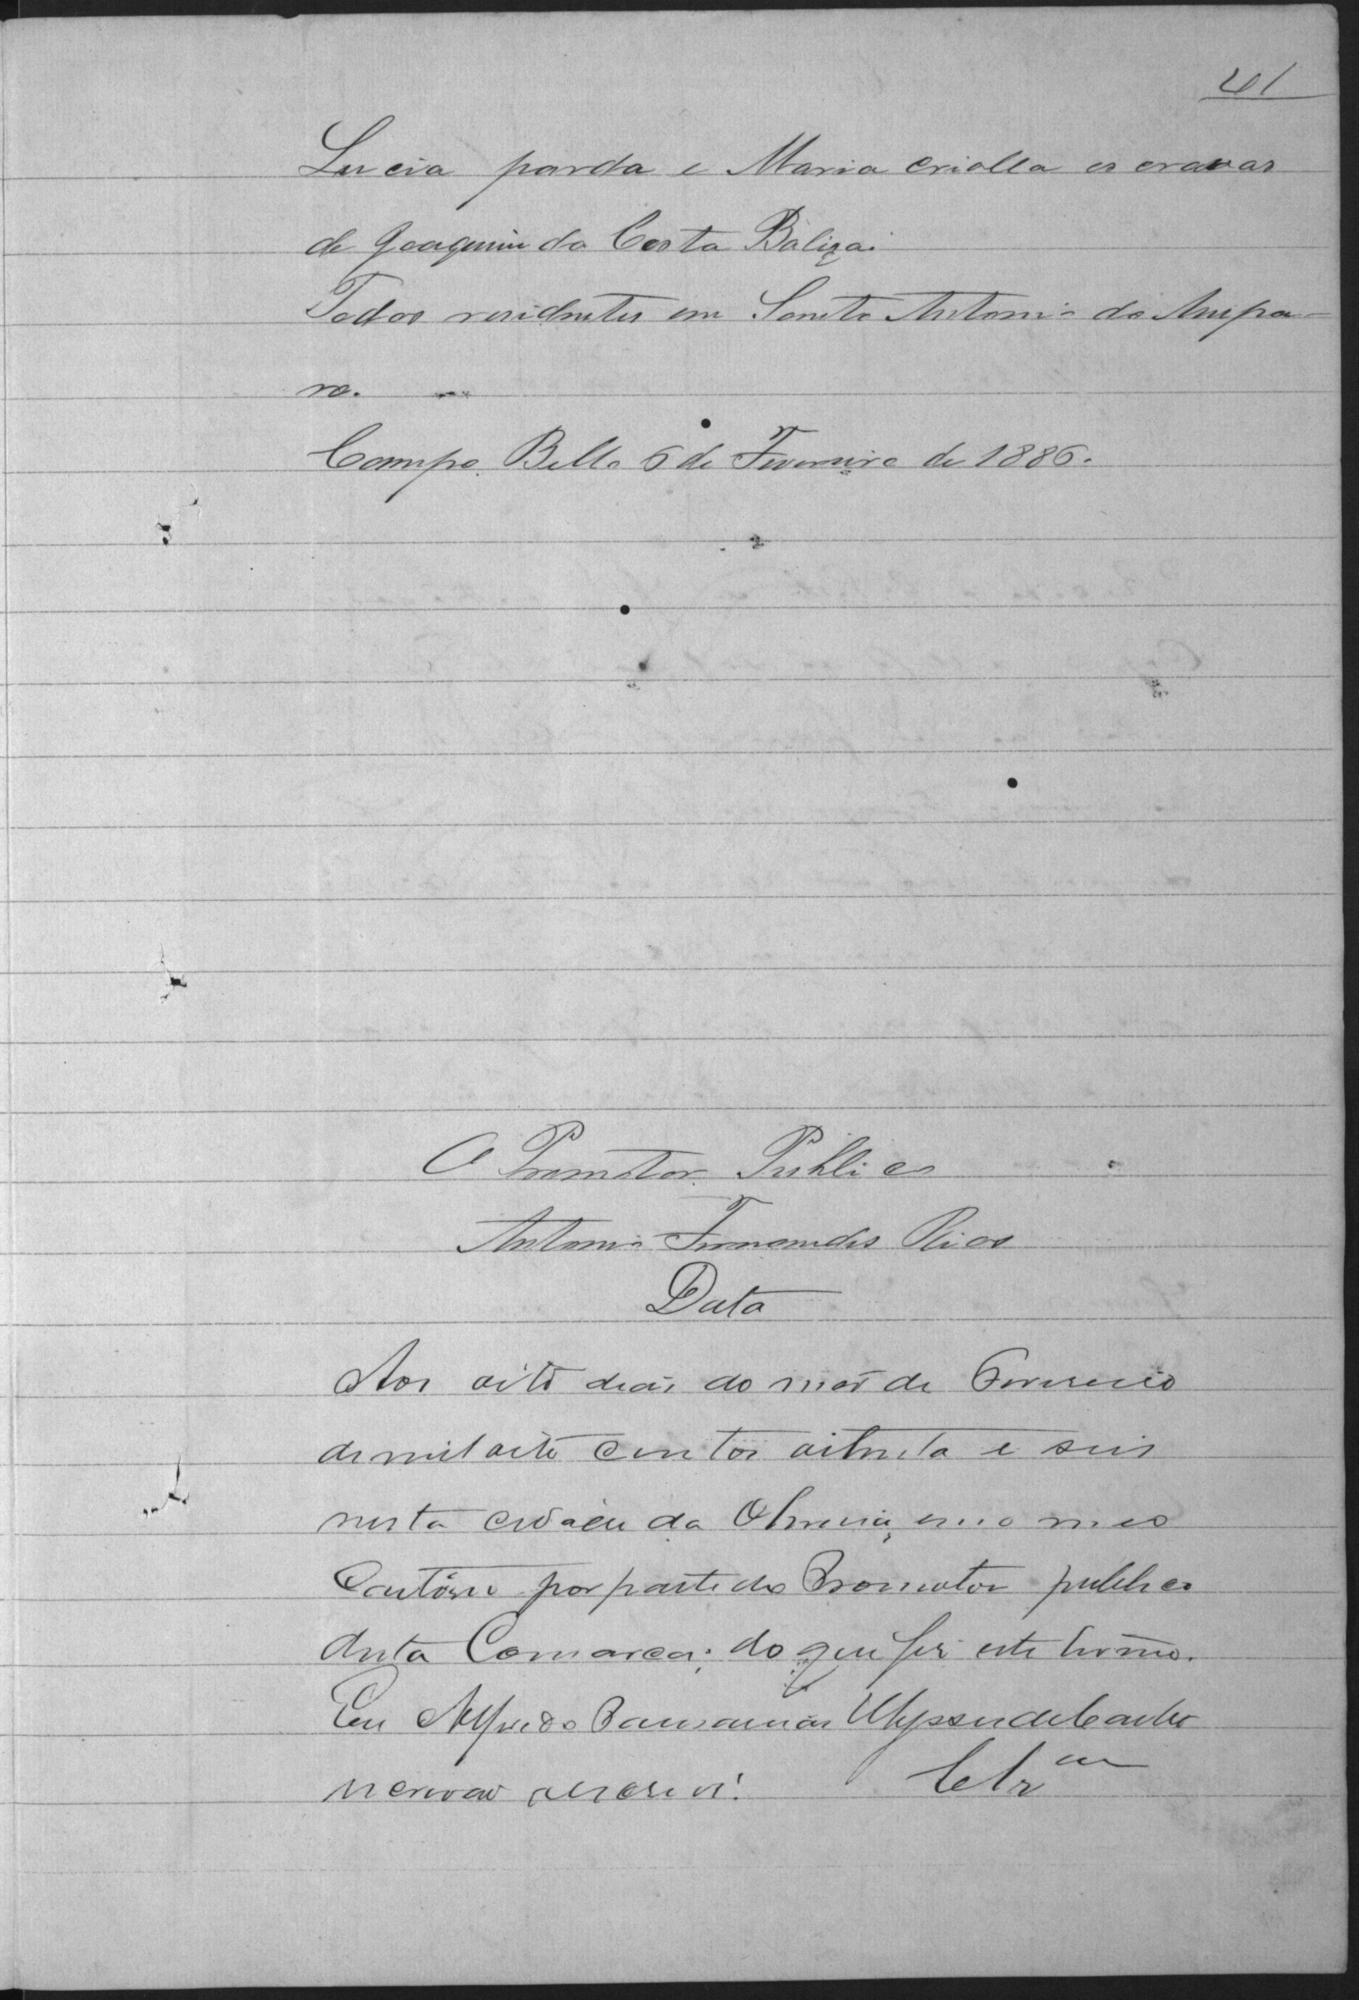 41
Lucia parda e Maria criolla escravas
de Joaquim da Costa Baliza.
Todos residentes em Santo Antonio do Ampa-
ro.
Campo Bello 6 de Fevereiro de 1886.
O Promotor Publico
Antonio Fernandes Rios
Data
Aos oito dias do mes de Fevereiro
de mil oito centos oitenta e seis
nesta cidade da Oliveira, em o meo
Cartorio por parte do Promotor publico
desta Comarca; do que fiz este termo.
Eu Alfredo Ulysses de Castro
escrivão escrevi.